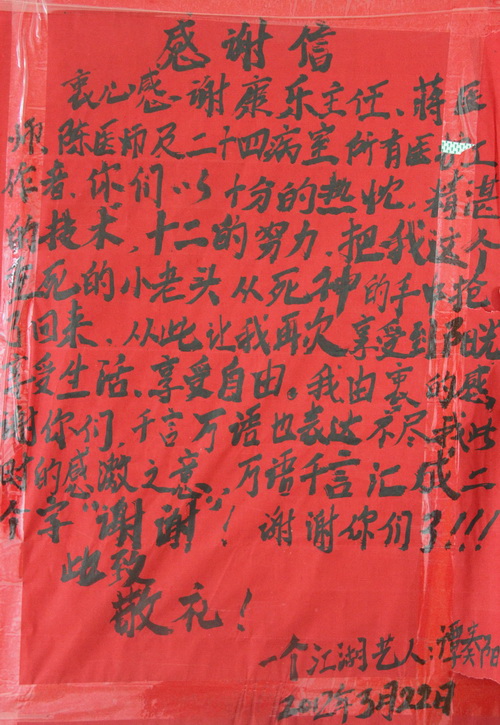 感谢信
衷心感谢康乐主任、蒋医
师、陈医师及二十四病室所有医护工
作者、你们以十分的热忱、精湛
的技术、十二的努力、把我这个
垂死的小老头从死神的手中抢
了回来、从此让我再次享受到阳光
享受生活、享受自由。我由衷的感
谢你们、千言万语也表达不尽我此
时的感激之意、万语千言汇成二
个字"谢谢"！谢谢你们了!!!
此致
敬礼！
一个江湖艺人：谭奏阳
2012年3月22日